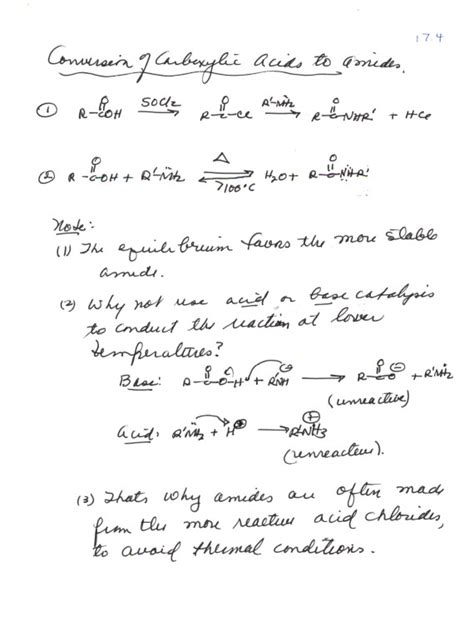 17.4
Conversion of Carboxylic Acids to Amides.
① R-C(=O)OH SOCl2 → R-C(=O)-Cl R'-N̈H2 → R-C(=O)-NHR' + HCl
② R-C(=O)OH + R'-N̈H2 Δ ⇌ >100°C H2O + R-C(=O)-N̈HR'
Note:
(1) The equilibrium favors the more stable
amide.
(2) Why not use acid or base catalysis
to conduct the reaction at lower
temperatures?
Base: R-C(=O)-O-H + R'NH → R-C(=O)-O⊖ + R'NH2
(unreactive)
Acid: R'N̈H2 + H⊕ → R'-NH3 ⊕
(unreactive).
(3) Thats why amides are often made
from the more reactive acid chlorides,
to avoid thermal conditions.